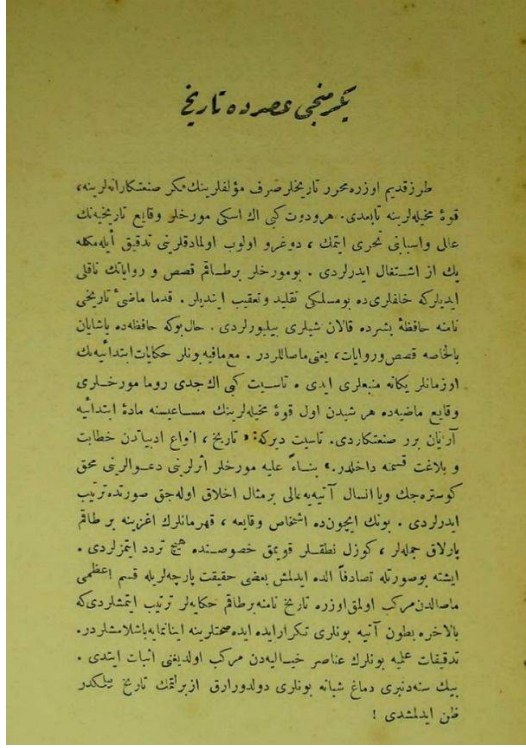 یکرمنجی عصرده تاریخ
طرز قدیم اوزره محرر تاریخلر صرف مؤلفلرینك فكر صنعتكارانه‌لرینه،
قوهٔ مخیله‌لرینه تابعدی. هرودوت كبی اك اسكی مورخلر وقایع تاریخیه‌نك
علل واسبابنی تحری ایتمك ، دوغرو اولوب اولمادقلرینی تدقیق ایله‌مكله
پك از اشـتغال ایدرلردی . بومورخلر برطاقم قصص و روایاتك ناقلی
ایدیلركه خلفلری‌ده بومسلكی تقلید وتعقیب ایتدیلر . قدما ماضیٔ تاریخی
نامنه حافظهٔ بشرده قالان شیلری بیلیورلردی . حال‌بوكه حافظه‌ده یاشایان
بالخاصه قصص وروایات، یعنی ماصاللردر . مع‌مافیه بونلر حكایات ابتدائیه‌نك
اوزمانلر یكانه منبعلری ایدی . تاسیت كبی اك جدی روما مورخـلری
وقایع ماضیه‌ده هر شیدن اول قوهٔ مخیله‌لرینك مسـاعیسنه مادهٔ ابتدائیه
آرایان برر صنعتكاردی. تاسیت دیركه: « تاریخ ، انواع ادبیاتدن خطابت
و بلاغت قسمنه داخلدر.» بنـاءً علیه مورخلر اثرلرینی دعـوالرینی محق
كوستره‌جك ویا انسال آتیه‌یه عالی برمثال اخلاق اوله‌جق صورتده ترتیب
ایدرلردی . بونك ایچون‌ده اشخاص وقایعه ، قهرمانلرك اغزینه بر طاقم
پارلاق جمله‌لر ، كوزل نطقـلر قویمق خصوصـنده هیچ تردد ایتمزلردی .
ایشته بوصورتله تصادفاً الده ایدلمش بعضی حقیقت پارچه‌لریله قسم اعظمی
ماصالدن مركب اولمق اوزره تاریخ نامنه برطاقم حكایه‌لر ترتیب ایتمشلردی‌كه
بالاخره بطون آتیه بونلری تـكرار ایده ایده صحتلرینه اینانمایه باشلامشلردر.
تدقیقات علمیه بونلرك عناصر خیـالیه‌دن مركب اولدیغنی اثبات ایتدی .
بیك سنه‌دنبری دماغ شبانه بونلری دولدورارق ازبرلتمك تاریخ بیلكدر
ظن ایدلمشدی !